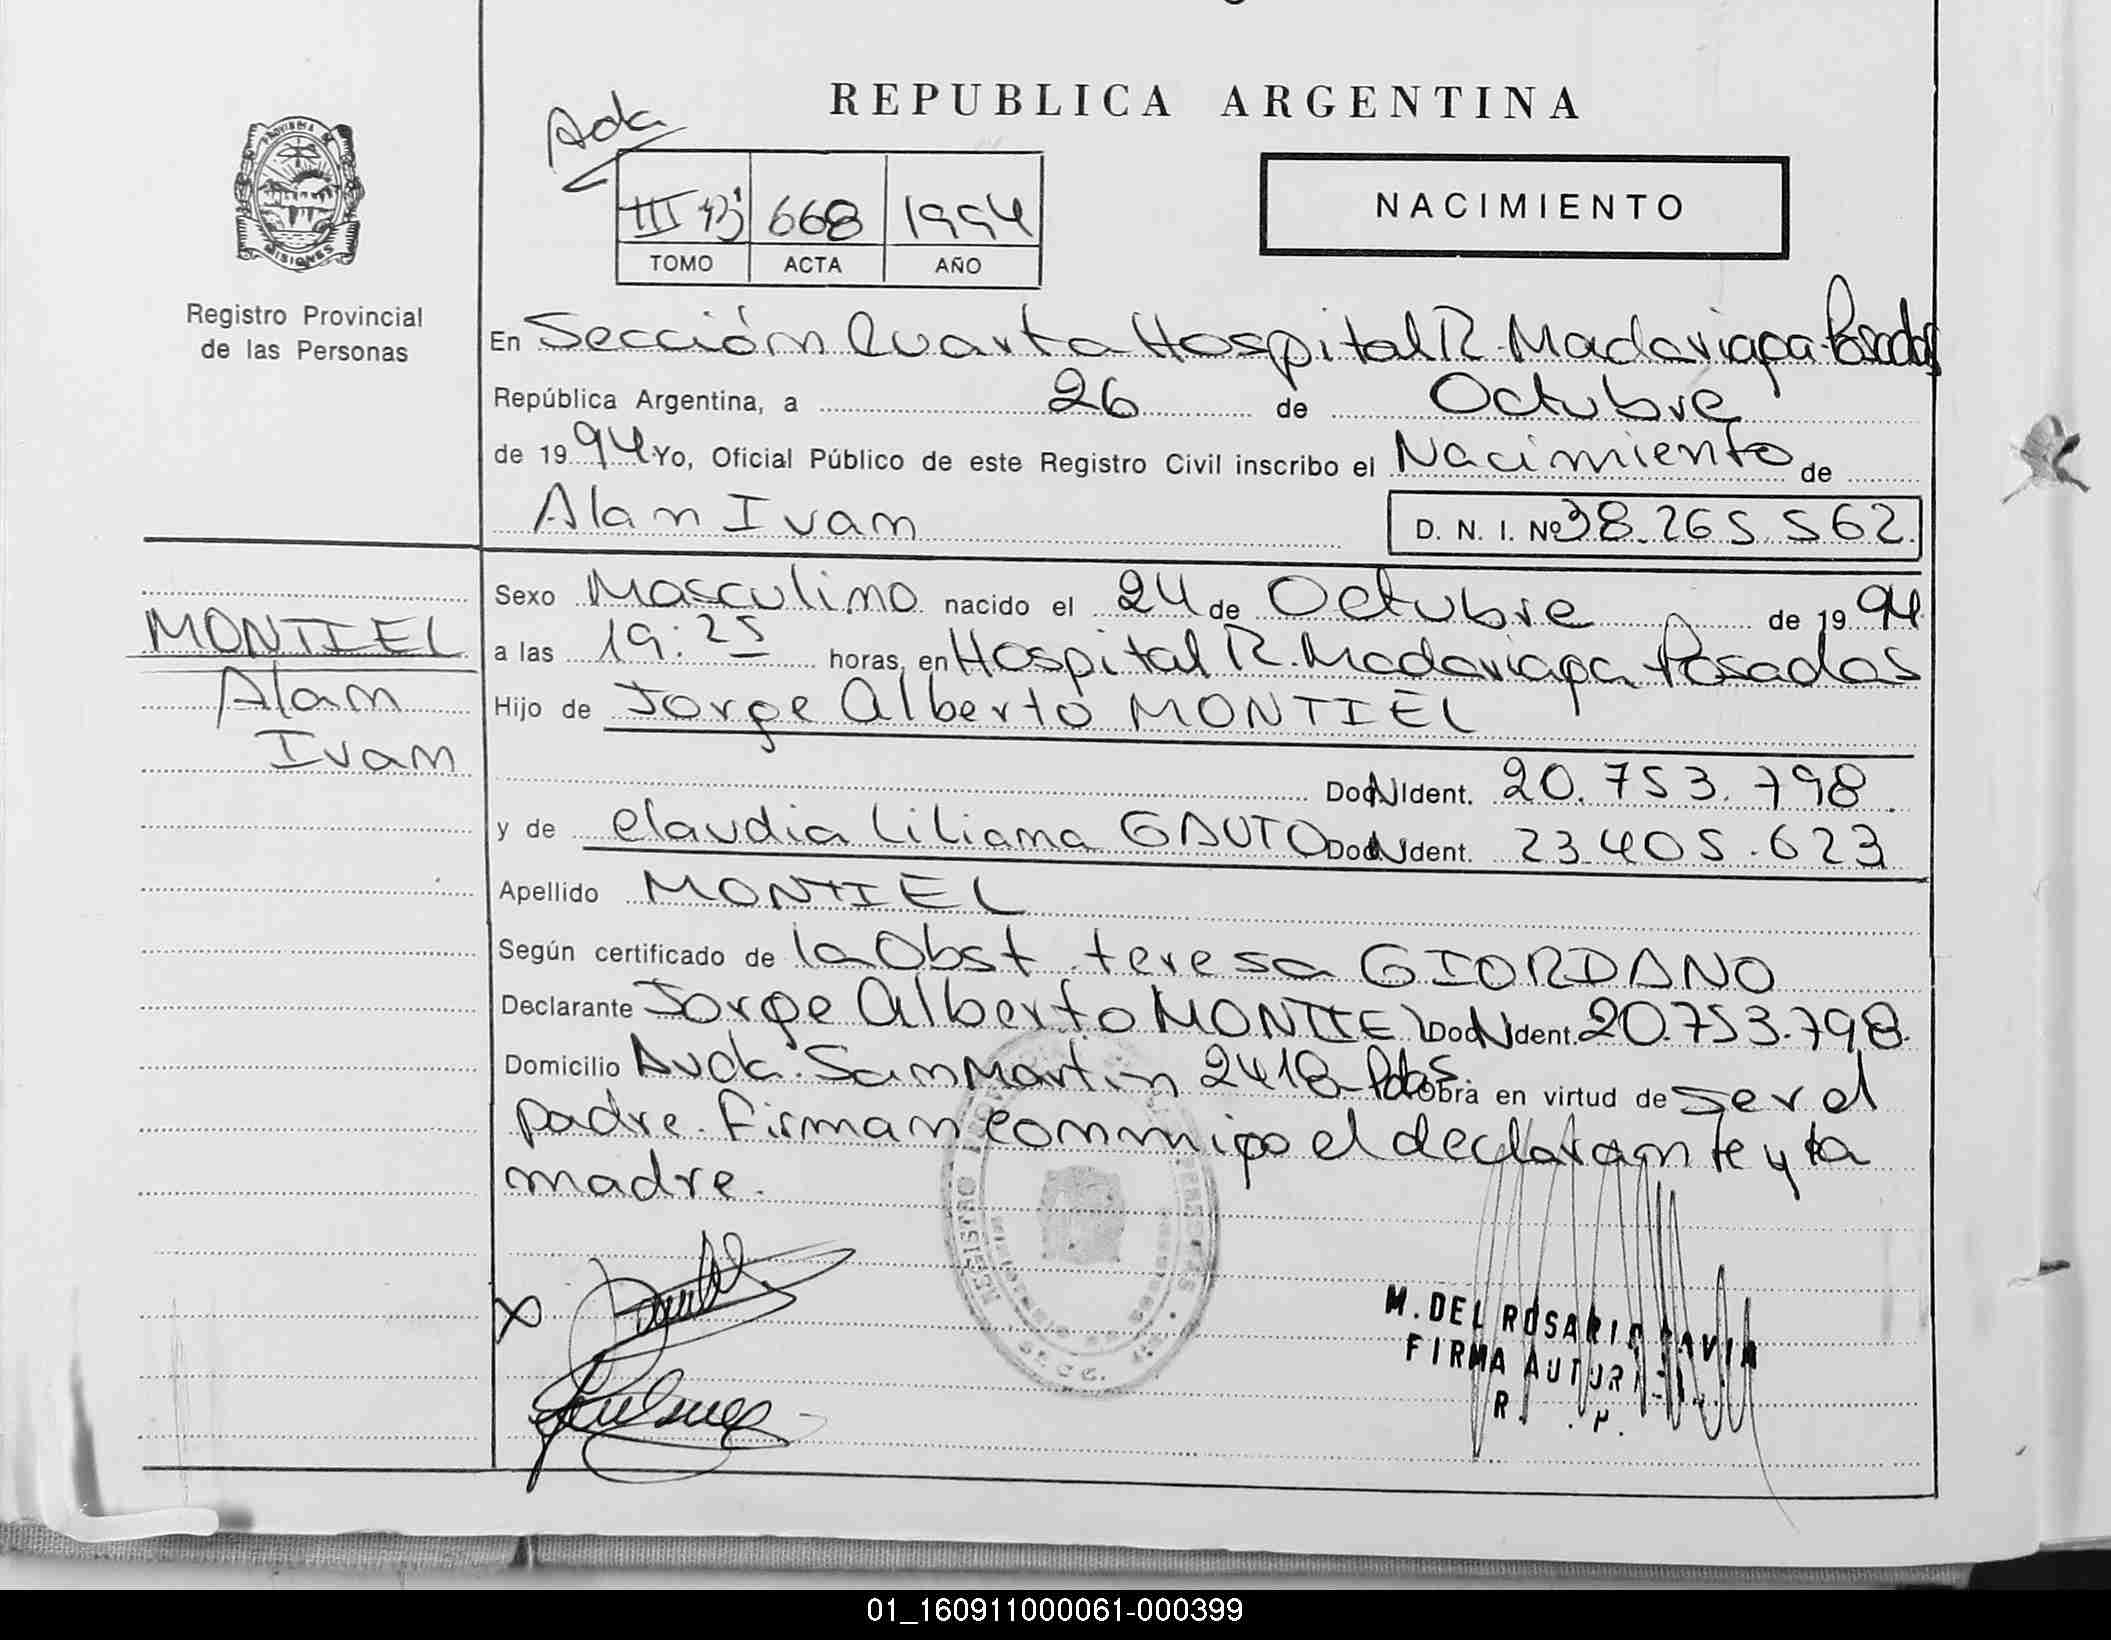 REPUBLICA ARGENTINA
PROVINCIA DE
MISIONES
Registro Provincial
de las Personas
668 1994
TOMO ACTA AÑO
NACIMIENTO
En Sección Cuarta Hospital R. Madariaga Posadas
República Argentina, a 26 de Octubre
de 1994 Yo, Oficial Público de este Registro Civil inscribo el Nacimiento de
Alan Ivan D. N. I. Nº 38.265.562.
MONTIEL
Alan
Ivan
Sexo Masculino nacido el 24 de Octubre de 1994
a las 19:25 horas, en Hospital R. Madariaga Posadas
Hijo de Jorge Alberto MONTIEL
Doc N Ident. 20.753.798
y de Claudia Liliana GAUTO Doc N Ident. 23.405.623
Apellido MONTIEL
Según certificado de la Obst. teresa GIORDANO
Declarante Jorge Alberto MONTIEL Doc N Ident. 20.753.798.
Domicilio Avda. San Martin 2418 Pdas. Obra en virtud de ser el
padre. Firman conmigo el declarante y la
madre.
M. DEL ROSARIO
FIRMA
01_160911000061-000399